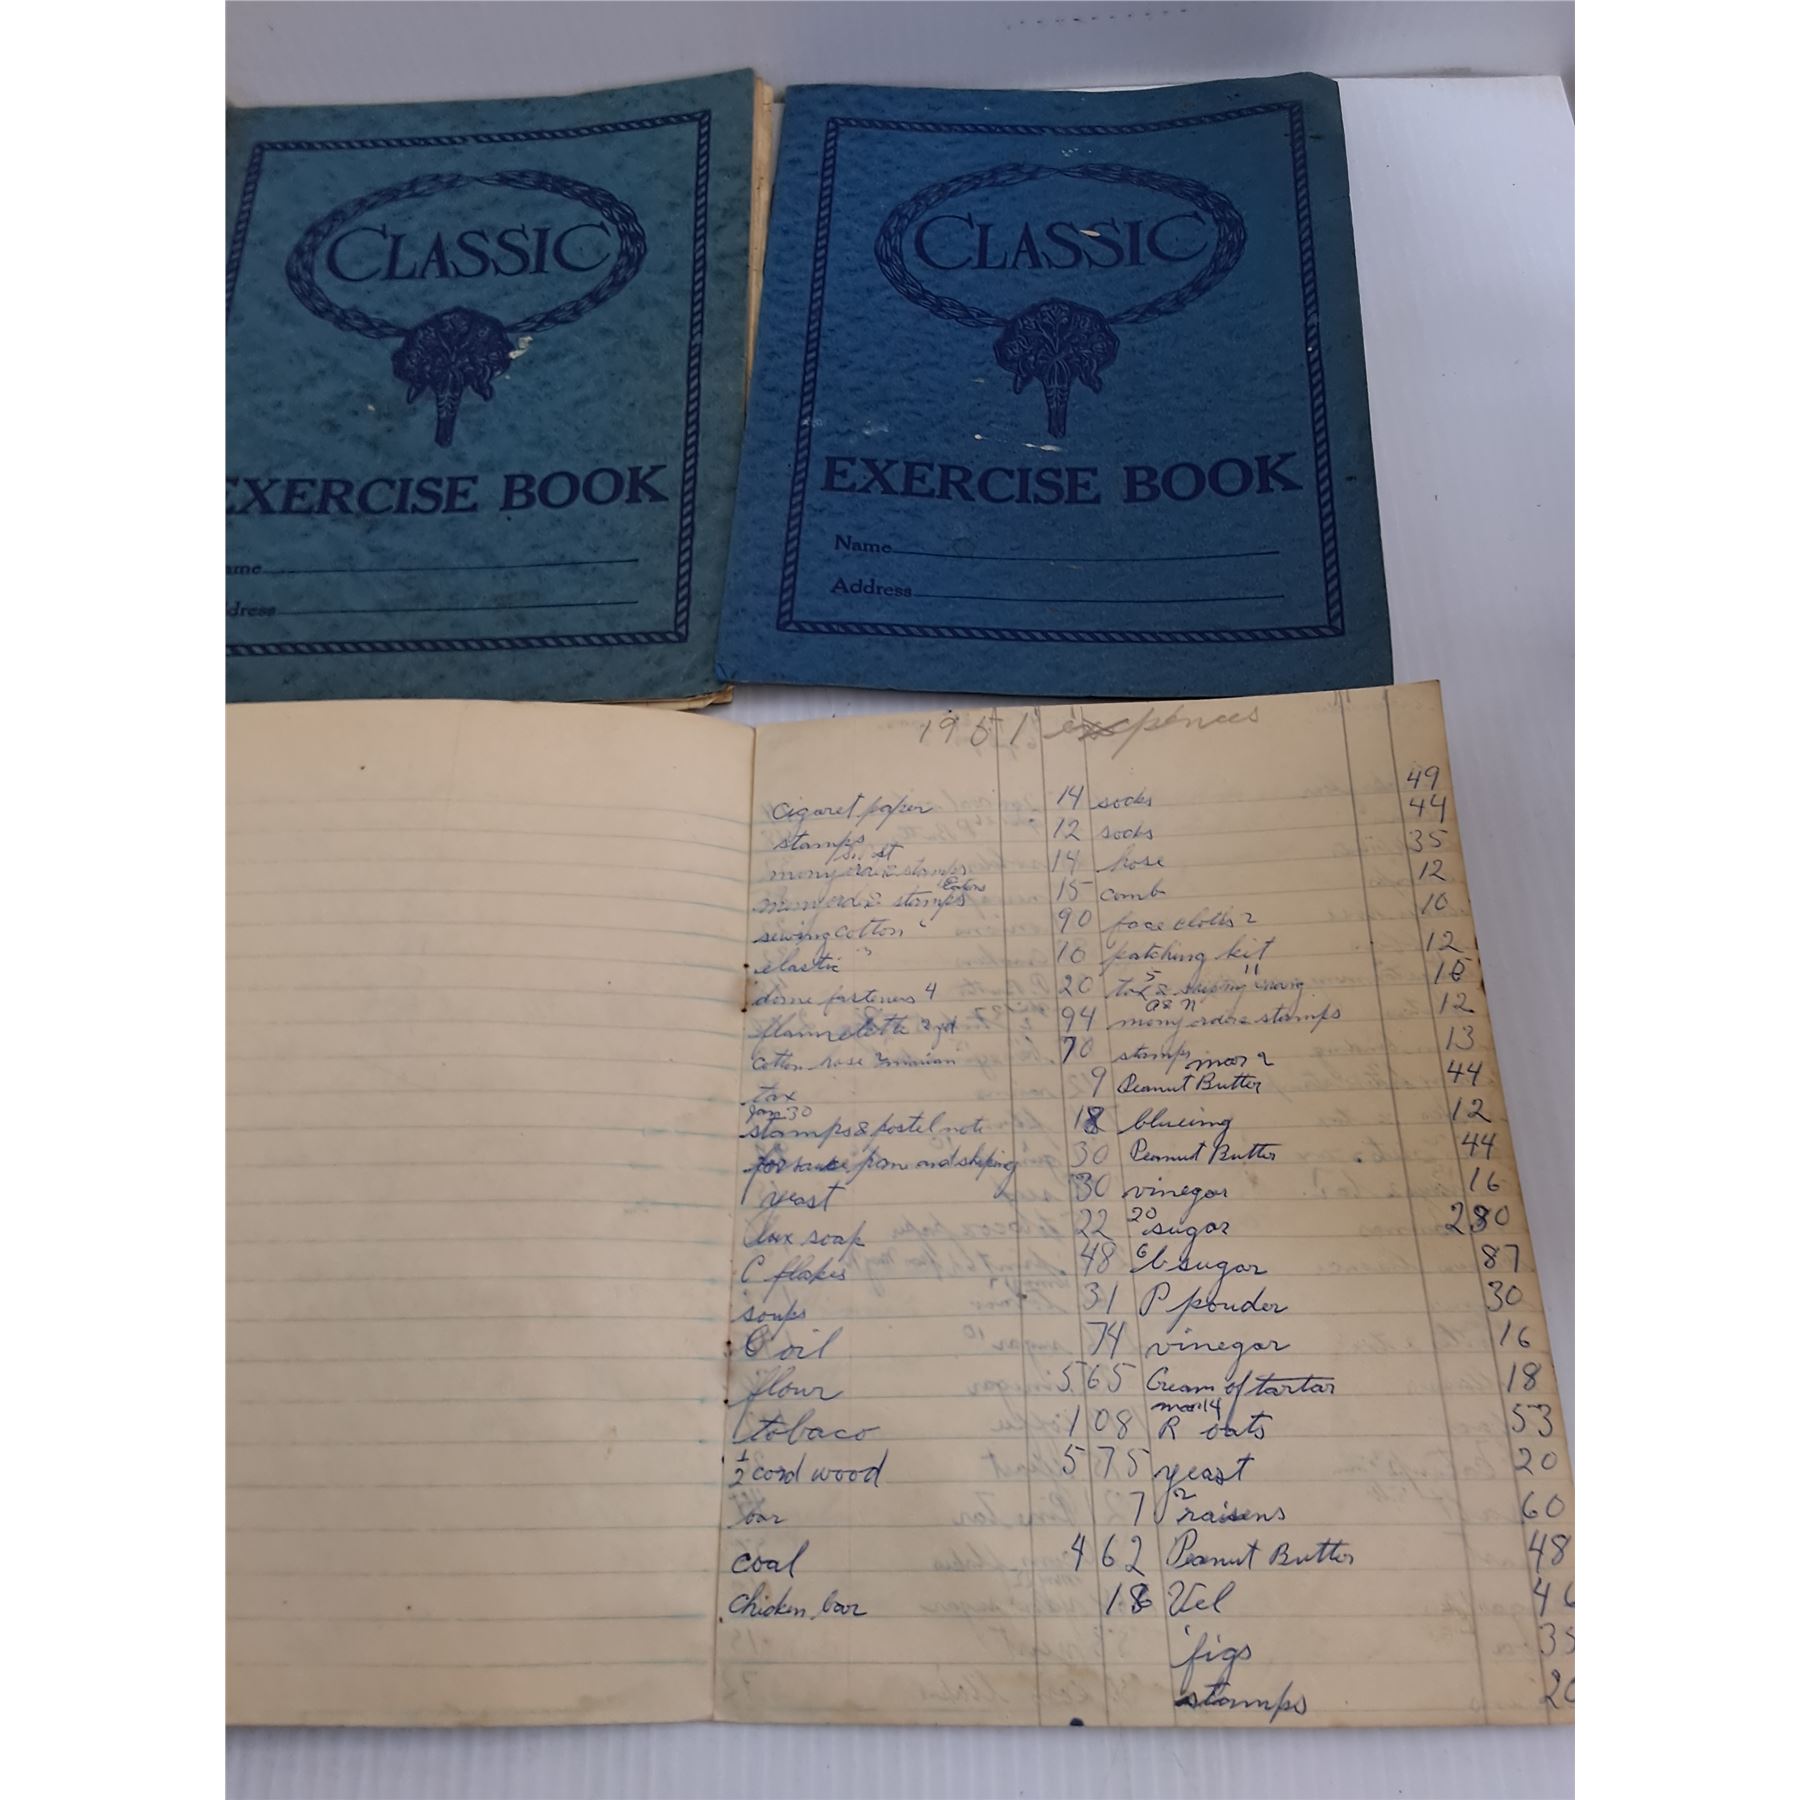 CLASSIC
EXERCISE BOOK
ame
dress
CLASSIC
EXERCISE BOOK
Name
Address
1951 expences
cigaret paper 14
stamps 12
mony order & stamps 14
mony order & stamps Eatons 15
sewing cotton " 90
elastic " 10
dome fasteners 4 20
flannelette 2 yd 94
cotton hose 94 70
tax 9
Jan 30
stamps & postel note 18
for sauce pan and shiping 30
yeast 30
lux soap 22
C flakes 48
soups 31
C oil 74
flour 5 65
tobaco 1 08
1/2 cord wood 5 75
bar 7
coal 4 62
chicken bar 18
socks 49
socks 44
hose 35
comb 12
face cloths 2 10
patching kit 12
tax 5 & shiping 11 15
mony order stamps 12
stamps 13
mar 2
Peanut Butter 44
blueing 12
Peanut Butter 44
vinegar 16
20 sugar 2 80
6 b sugar 87
P pouder 30
vinegar 16
Cream of tartar 18
mar 14
R oats 53
yeast 20
2 raisens 60
Peanut Butter 48
Vel 46
figs 35
stamps 20